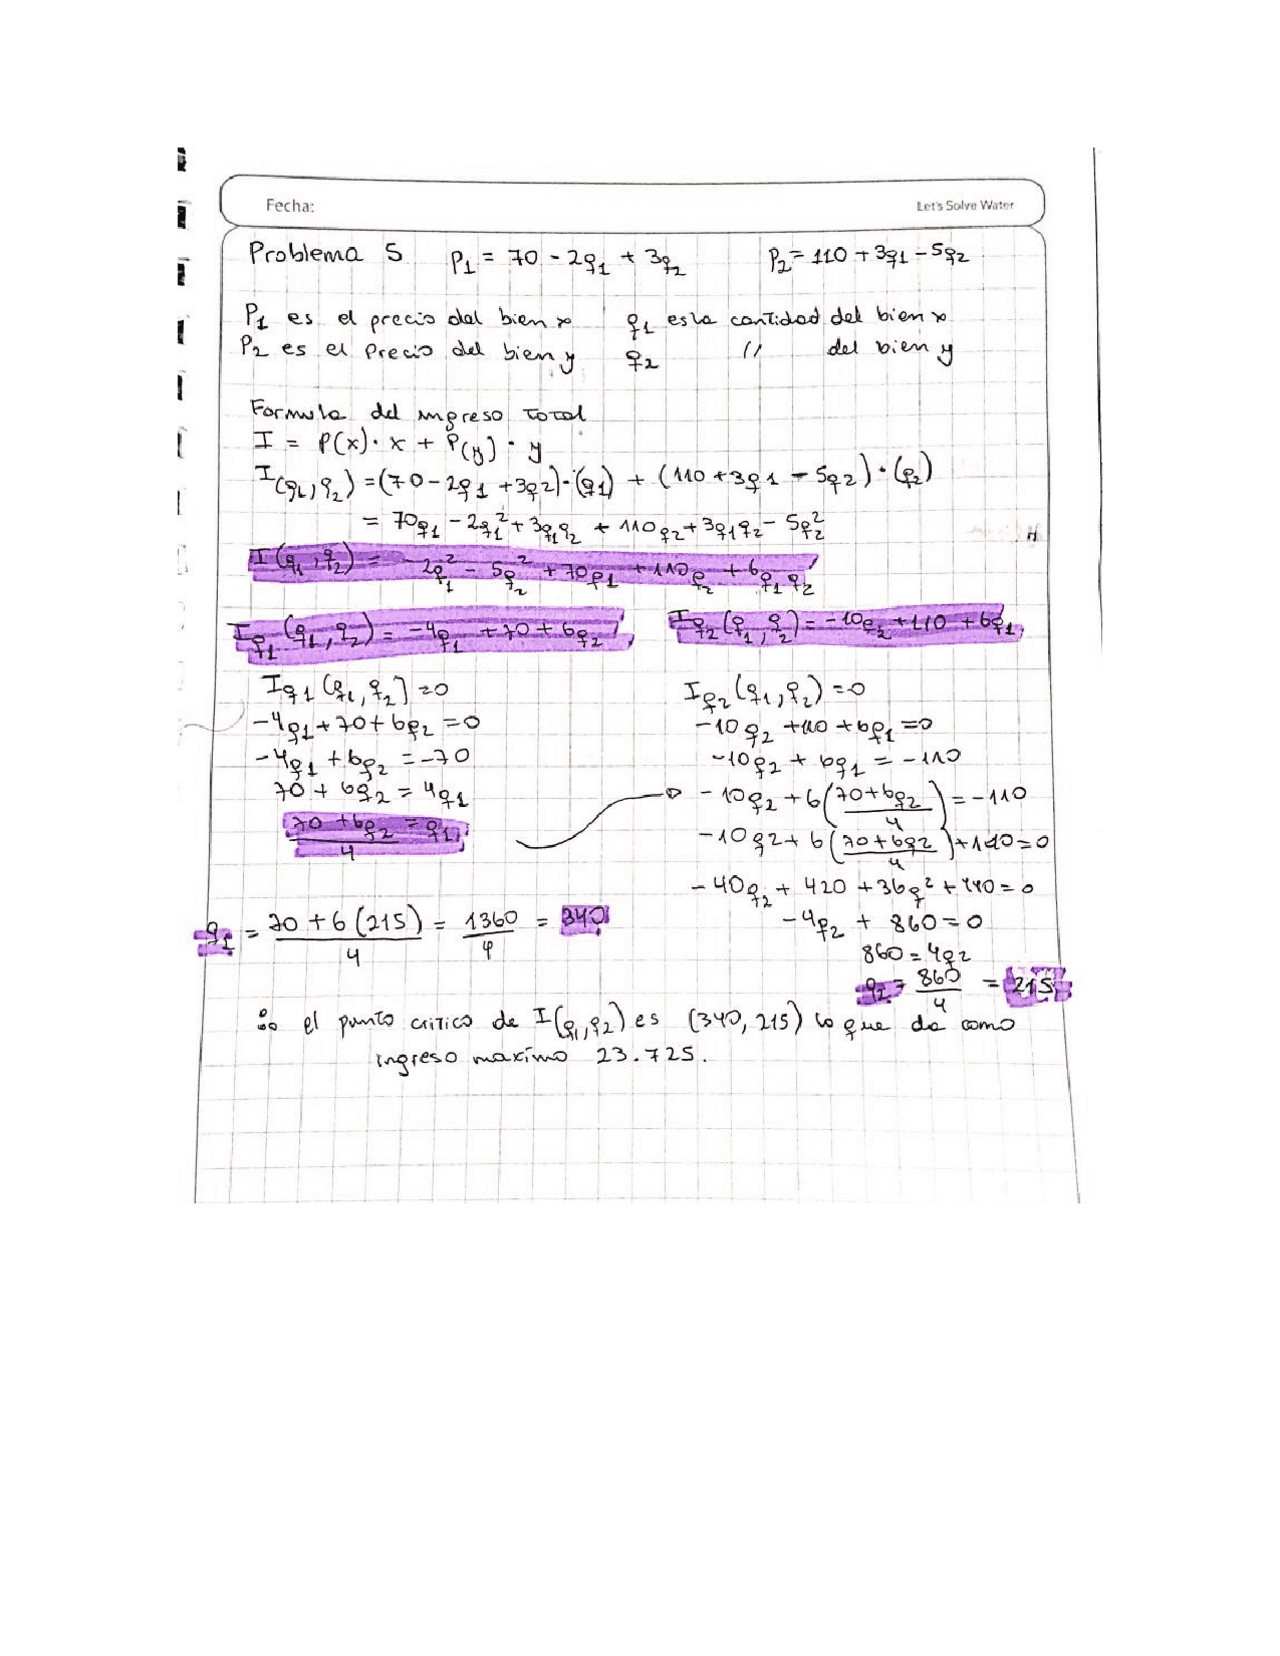 Fecha: Let's Solve Water
Problema 5 P₁ = 70 - 2q₁ + 3q₂ P₂ = 110 + 3q1 - 5q2
P₁ es el precio del bien x q₁ es la cantidad del bien x
P₂ es el Precio del bien y q₂ // del bien y
Formula del ingreso Total
I = P(x) · x + P(y) · y
I(q₁, q₂) = (70 - 2q1 + 3q2) · (q1) + (110 + 3q1 - 5q2) · (q₂)
= 70q₁ - 2q₁² + 3q₁q₂ + 110q₂ + 3q₁q₂ - 5q₂²
I(q₁, q₂) = -2q₁² - 5q₂² + 70q₁ + 110q₂ + 6q₁q₂
Iq₁(q₁, q₂) = -4q₁ + 70 + 6q₂ Iq₂(q₁, q₂) = -10q₂ + 110 + 6q₁
Iq₁(q₁, q₂) = 0 Iq₂(q₁, q₂) = 0
-4q₁ + 70 + 6q₂ = 0 -10q₂ + 110 + 6q₁ = 0
-4q₁ + 6q₂ = -70 -10q₂ + 6q₁ = -110
70 + 6q₂ = 4q₁ -10q₂ + 6((70+6q₂)/4) = -110
(70 + 6q₂)/4 = q₁ -10q2 + 6((70+6q2)/4) + 110 = 0
-40q₂ + 420 + 36q² + 440 = 0
q₁ = (70 + 6(215))/4 = 1360/4 = 340 -4q₂ + 860 = 0
860 = 4q2
q₂ = 860/4 = 215
∴ el punto critico de I(q₁, q₂) es (340, 215) lo que da como
ingreso maximo 23.725.